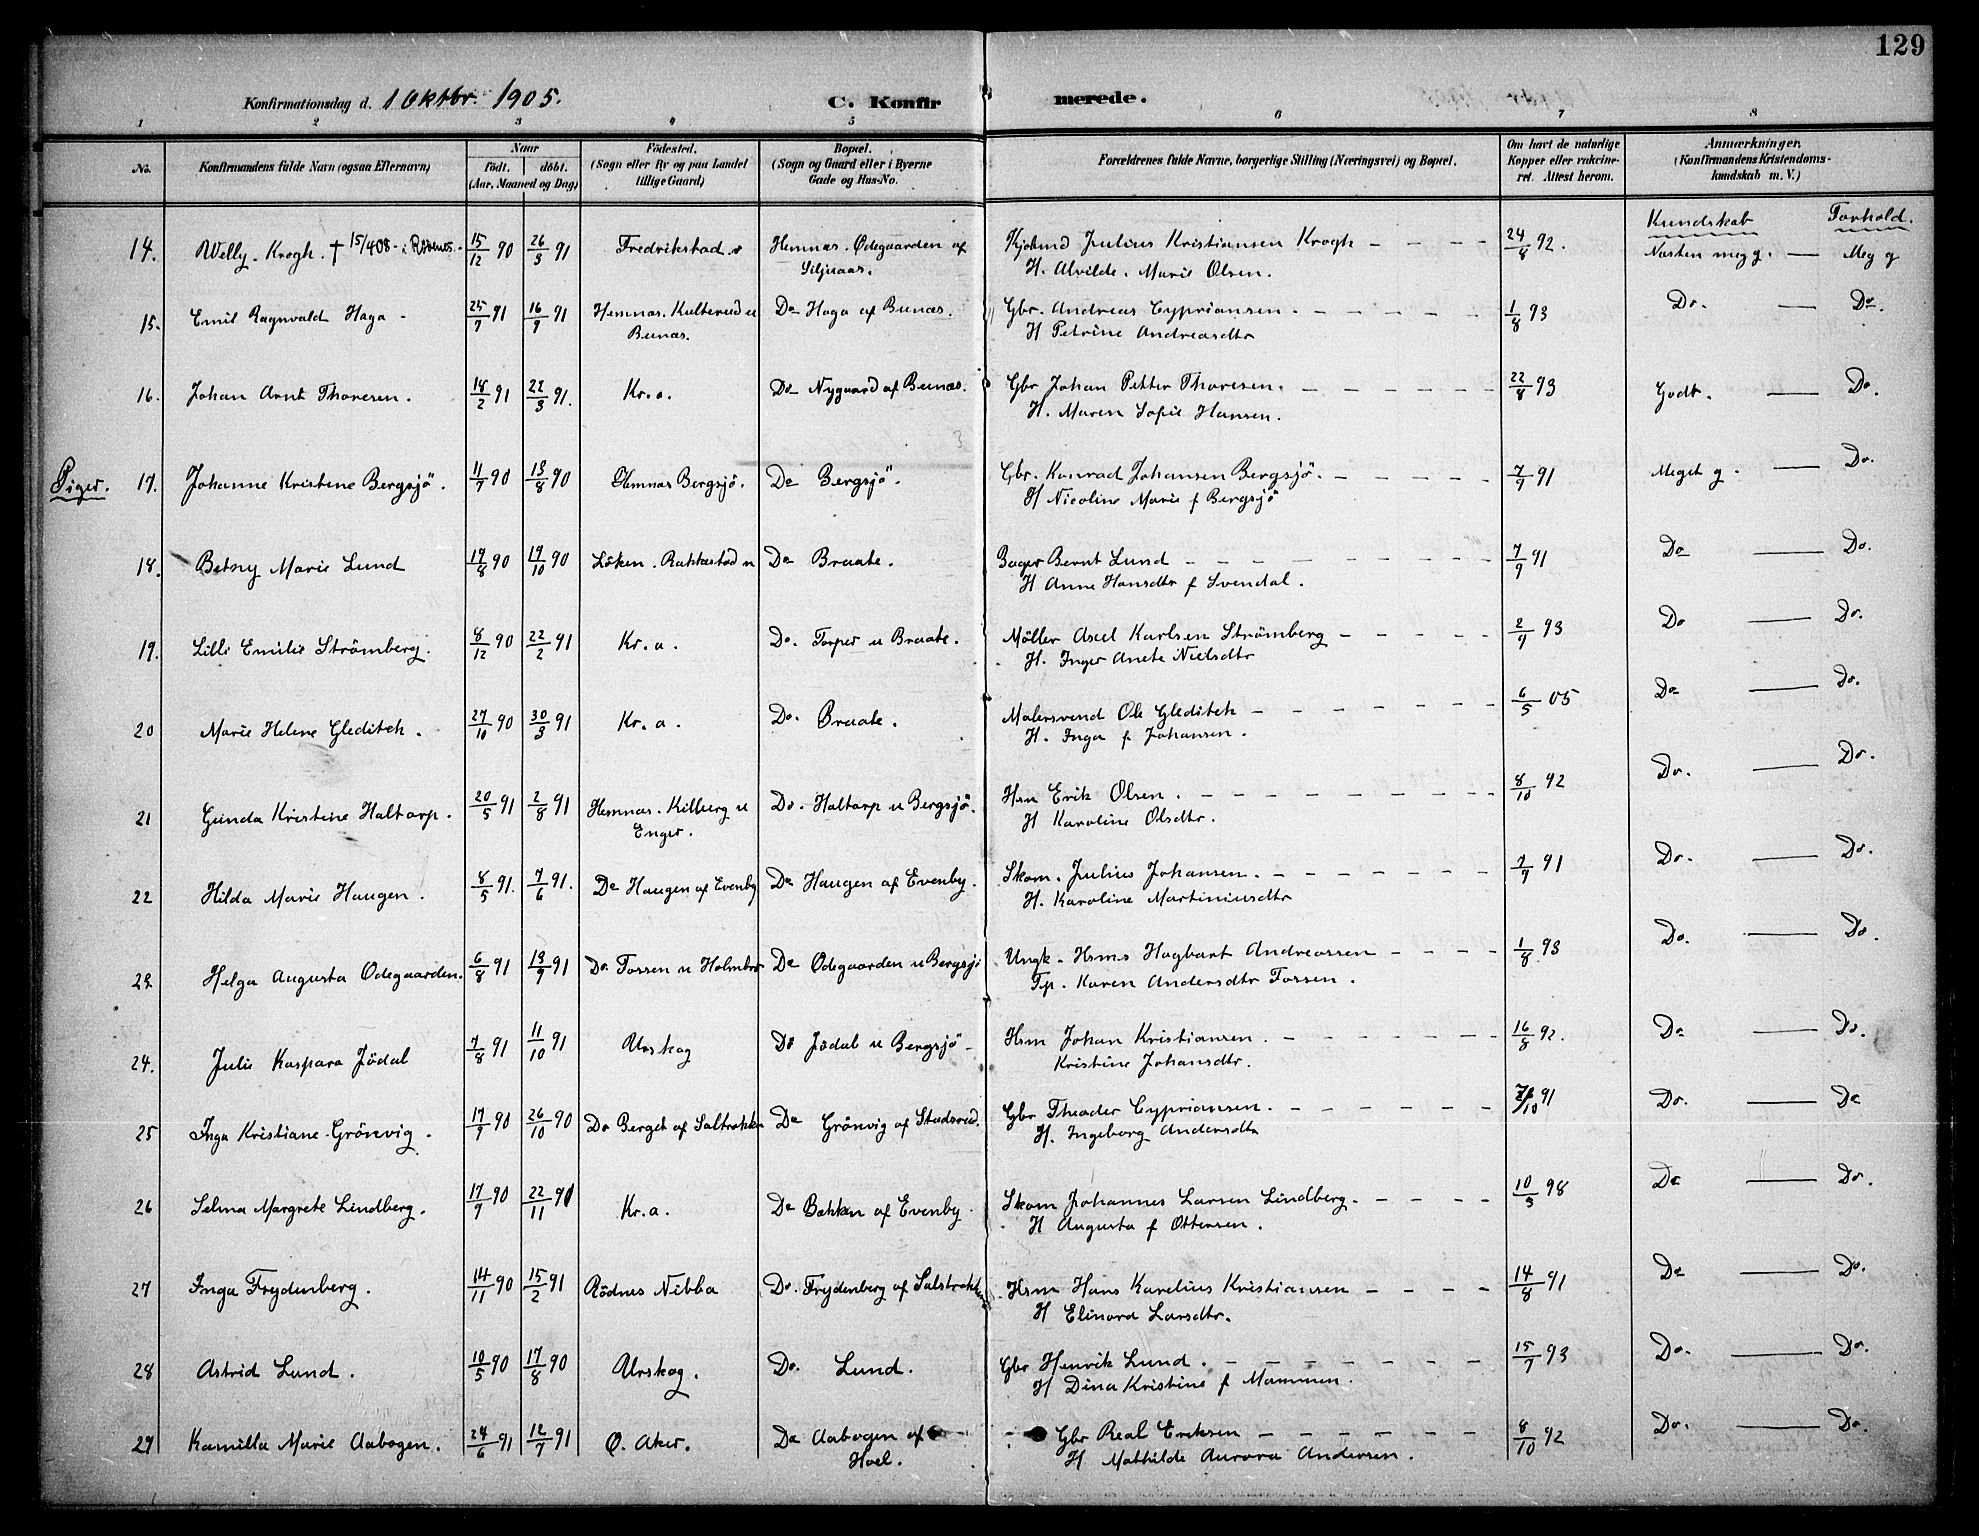 129
Konfirmationsdag d. 1 Oktbr. 1905.
C. Konfirmerede.
1 2 3 4 5 6 7 8
No. Konfirmandens fulde Navn (ogsaa Efternavn) Naar født. døbt. (Aar, Maaned og Dag) Fødested. (Sogn eller By og paa Landet tillige Gaard) Bopæl. (Sogn og Gaard eller i Byerne Gade og Hus-No. Forældrenes fulde Navne, borgerlige Stilling (Næringsvei) og Bopæl. Om havt de naturlige Kopper eller vakcineret. Attest herom. Anmærkninger. (Konfirmandens Kristendomskundskab m. V.)
Kundskab Forhold.
14. Welly Krogh. † 15/4 08 15/12 90 26/3 91 Fredrikstad Hemnæs. Ødegaarden af Kristiansen Krogh 24/8 92. Næsten meg g. — Meg g
H. Alvilde Marie Olsen.
15. Emil Ragnvald Haga 25/7 91 16/9 91 Hemnæs. Kulterud u Do Haga af Bunæs. Gbr. Andreas Cypriansen 1/8 93 Do. — Do.
Bunæs. H Petrine Andreasdtr
16. Johan Arnt Thoresen. 18/2 91 22/3 91. Kr. a. Do Nygaard af Bunæs. Gbr Johan Petter Thoresen. 22/8 93 Godt. — Do.
H. Maren Sofie Hansen.
Piger. 17. Johanne Kristine Bergsjö. 11/7 90 13/8 90 Hemnæs Bergsjö. Do Bergsjö. Gbr. Konrad Johansen Bergsjö. 7/9 91 Meget g. — Do.
H Nicoline Marie f Bergsjö
18. Betsy Marie Lund 19/8 90 19/10 90 Löken. Rakkestad Do Braate. Bager Bernt Lund 7/9 91 Do — Do.
H Anne Hansdtr f Svendal.
19. Lilli Emilie Strömberg. 8/12 90 22/2 91 Kr. a. Do. Torper u Braate. Möller Axel Karlsen Strömberg 2/9 93 Do — Do.
H. Inger Anete Nielsdtr
20 Marie Helene Gleditch. 27/10 90 30/3 91 Kr. a. Do. Braate. Malersvend Ole Gleditch 6/5 05 Do — Do.
H. Inga f Johansen.
21 Gunda Kristine Haltorp. 20/5 91 2/8 91 Hemnæs. Kilburg u Do. Haltorp u Bergsjö. Hsm Erik Olsen. 8/10 92 Do. — Do.
Enger. H Karoline Olsdtr.
22 Hilda Marie Haugen. 8/5 91. 7/6 91. Do Haugen af Evenby Do Haugen af Evenby. Skom. Julius Johansen. 7/9 91 Do. — Do.
H. Karoline Martiniusdtr
23. Helga Augusta Ödegaarden. 6/8 91 13/9 91 Do. Fossen u Do Ödegaarden u Bergsjö Ungk. Hsms Hagbart Andreassen 1/8 93 Do. — Do.
Tp. Karen Andersdtr Fossen.
24. Julie Kaspara Jödal 7/8 91 11/10 91 Urskog Do Jödal u Bergsjö Hsm Johan Kristiansen. 16/8 92. Do — Do.
Kristine Johansdtr.
25 Inga Kristiane Grönvig. 17/9 90 26/10 90 Do Berget af Do Grönvig af Gbr Theodor Cypriansen. 91 Do. — Do
H. Ingeborg Andersdtr
26 Selma Margrete Lindberg. 17/9 90 22/11 90 Kr. a. Do Bakken af Evenby. Skom Johannes Larsen Lindberg. 10/3 98 Do — Do.
H Augusta f Ottersen.
27 Inga Frydenberg. 14/11 90 15/2 91 Rödnes Nibba Do. Frydenberg af Hsm Hans Karelius Kristiansen 14/8 91 Do — Do.
H Elinora Larsdtr.
28 Astrid Lund. 10/5 90 17/8 90 Urskog. Do. Lund. Gbr Henrik Lund. 15/7 93 Do. — Do.
H Dina Kristine f Mammen.
29 Kamilla Marie Aabogen. 24/6 91 12/7 91 Ö. Aker. Do Aabogen af Gbr Real Eriksen 8/10 92 Do. — Do.
Hoel. H Mathilde Aurora Andersen.